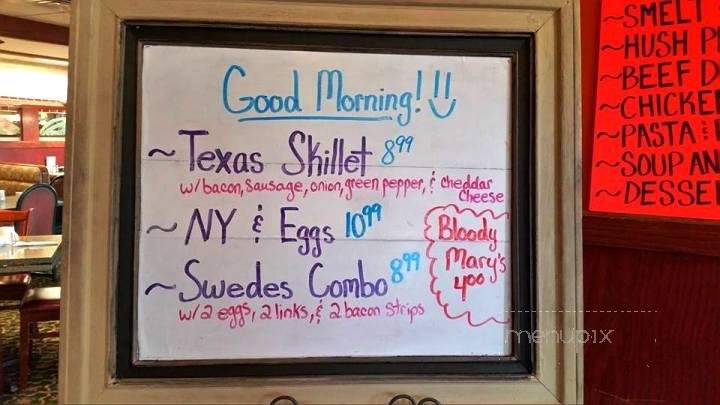 Good Morning!!
~Texas Skillet 8⁹⁹
w/bacon, sausage, onion, green pepper, & cheddar
Cheese
~NY & Eggs 10⁹⁹
~Swedes Combo 8⁹⁹
w/2 eggs, 2 links, & 2 bacon strips
Bloody
Mary's
4⁰⁰
~SMELT
~HUSH
~BEEF
~PASTA &
~SOUP
menupix